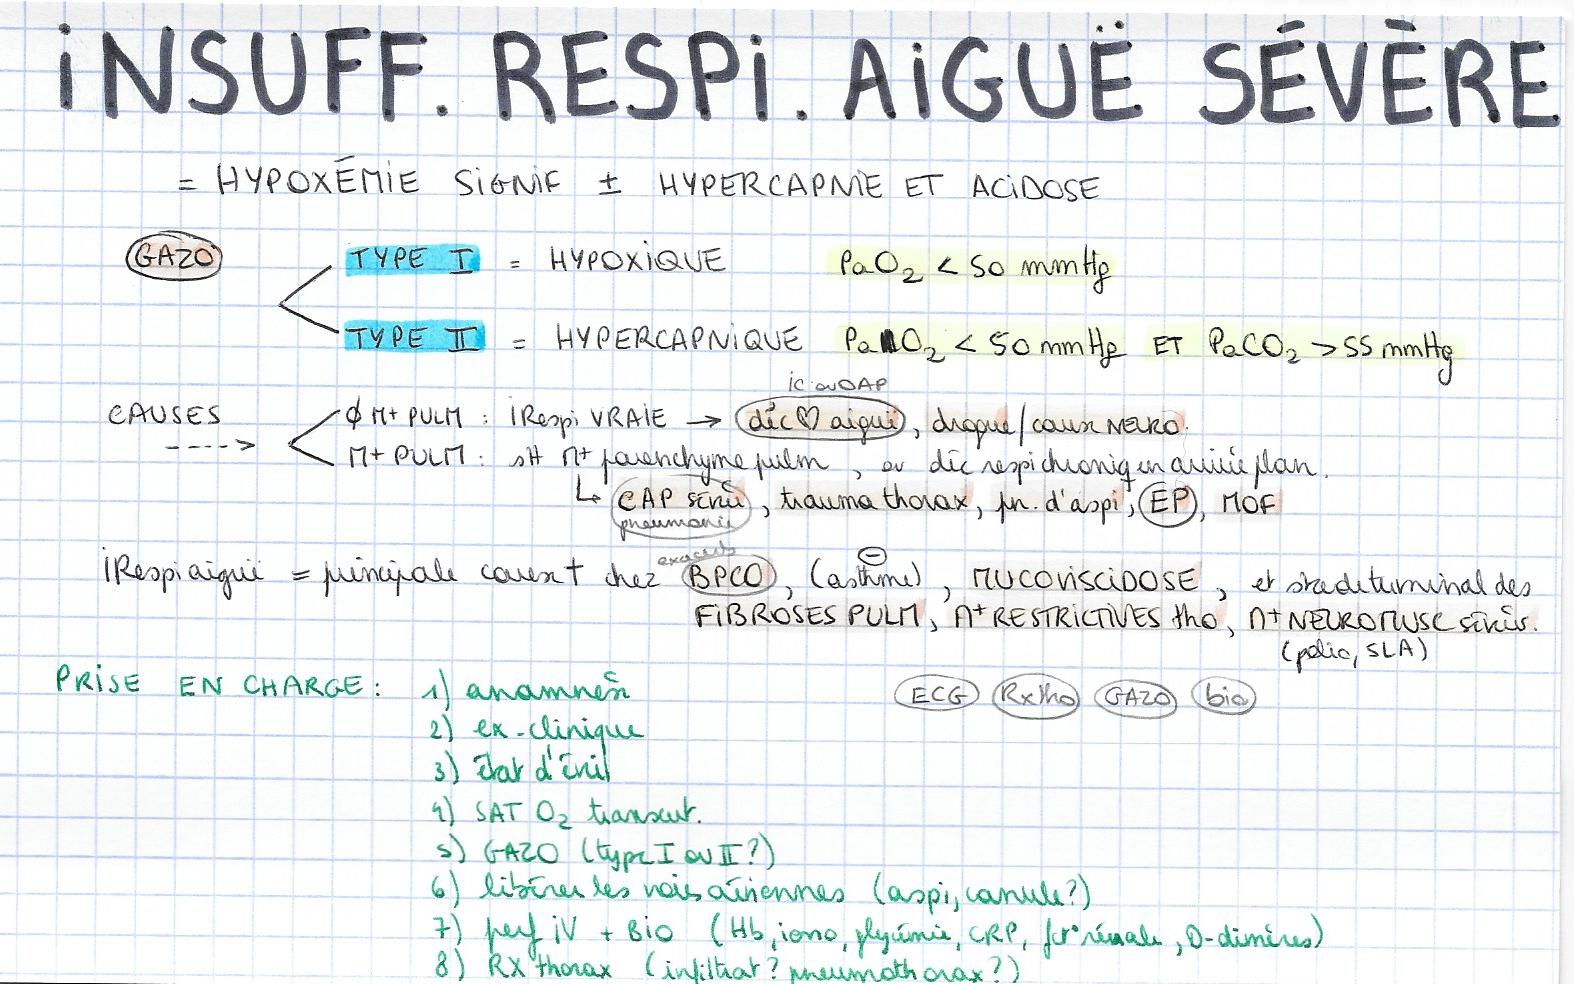 iNSUFF. RESPi. AiGUË SÉVÈRE
= HYPOXÉMIE SiGNiF ± HYPERCAPNIE ET ACiDOSE
GAZO
TYPE I = HYPOXiQUE PaO2 < 50 mmHg
TYPE II = HYPERCAPNiQUE PaO2 < 50 mmHg ET PaCO2 > 55 mmHg
ic ou OAP
CAUSES
----> Ø M+ PULM : iRespi VRAIE → déc ♡ aiguë, drogue/causes NEURO.
M+ PULM : st M+ parenchyme pulm, ou déc respi chroniq en arrière plan.
↳ CAP sévère, trauma thorax, pn. d'aspi, EP, MOF
pneumonie
exacerb ⊖
iRespi aiguë = principale cause † chez BPCO, (asthme), MUCOViSCiDOSE, et stade terminal des
FiBROSES PULM, M+ RESTRiCTiVES tho, M+ NEUROMUSC sévères.
(polio, SLA)
PRiSE EN CHARGE : 1) anamnèse
ECG Rx tho GAZO bio
2) ex. clinique
3) état d'éveil
4) SAT O2 transcut.
5) GAZO (type I ou II ?)
6) libérer les voies aériennes (aspi, canule ?)
7) perf iV + Bio (Hb, iono, glycémie, CRP, fct° rénale, D-dimères)
8) RX thorax (infiltrat ? pneumothorax ?)